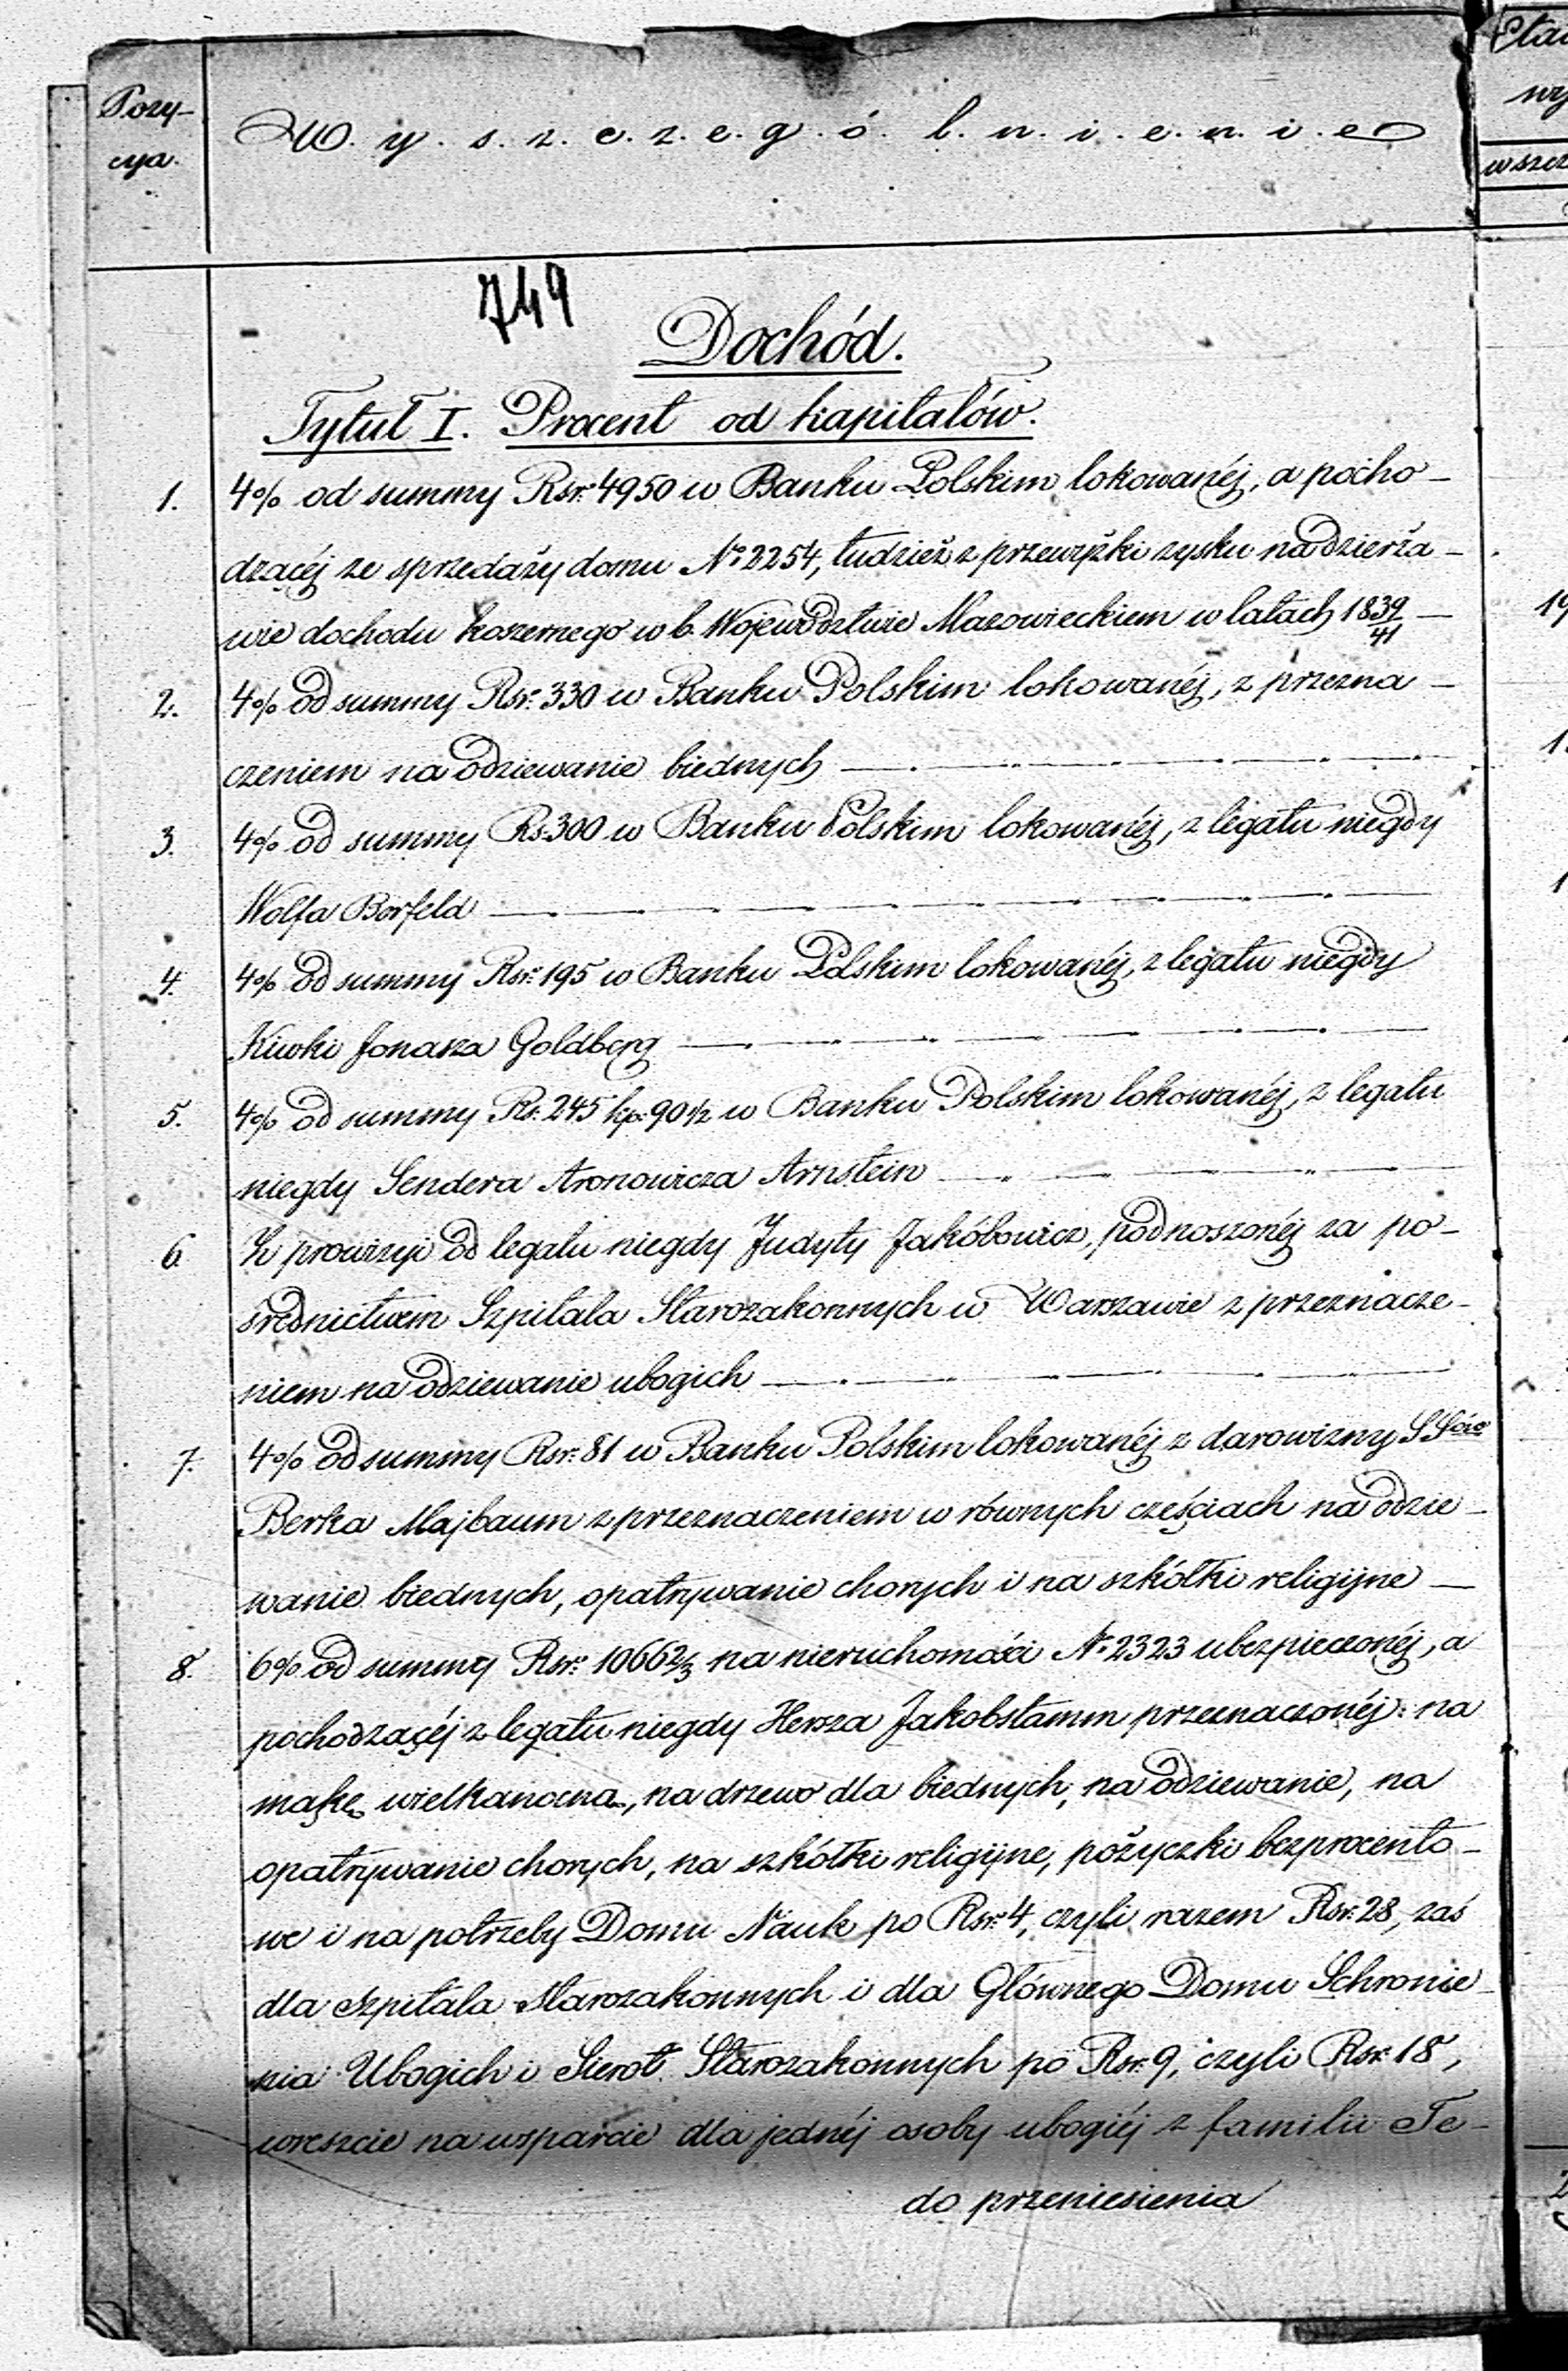 Pozy-
cya.
W. y. s. z. c. z. e. g. ó. l. n. i. e. n. i. e
749
Dochód.
Tytuł I. Procent od kapitałów.
1. 4% od summy Rsr: 4950 w Banku Polskim lokowanéj, a pocho-
dzącéj ze sprzedaży domu No 2254, tudzież z przewyżki zysku na dzierża-
wie dochodu koszernego w b. Województwie Mazowieckiem w latach 1839/41 —
2. 4% od summy Rsr: 330 w Banku Polskim lokowanéj, z przezna-
czeniem na odziewanie biednych
3. 4% od summy Rs: 300 w Banku Polskim lokowanéj, z legatu niegdy
Wolfa Borfeld
4. 4% od summy Rsr: 195 w Banku Polskim lokowanéj, z legatu niegdy
Kiwki Jonasza Goldberg
5. 4% od summy Rs: 245 kp: 90 1/2 w Banku Polskim lokowanéj, z legatu
niegdy Sendera Aronowicza Arnstein
6. Z prowizyi od legatu niegdy Judyty Jakóbowicz, podnoszonéj za po-
średnictwem Szpitala Starozakonnych w Warszawie z przeznacze-
niem na odziewanie ubogich
7. 4% od summy Rsr: 81 w Banku Polskim lokowanéj z darowizny SSów
Berka Majbaum z przeznaczeniem w równych częściach na odzie-
wanie biednych, opatrywanie chorych i na szkółki religijne —
8. 6% od summy Rsr: 1066 2/3 na nieruchomości No 2323 ubezpieczonéj, a
pochodzącéj z legatu niegdy Hersza Jakobstamm przeznaczonéj: na
mąkę wielkanocną, na drzewo dla biednych, na odziewanie, na
opatrywanie chorych, na szkółki religijne, pożyczki bezprocento-
we i na potrzeby Domu Nauk po Rsr: 4, czyli razem Rsr: 28, zaś
dla Szpitala Starozakonnych i dla Głównego Domu Schronie-
nia Ubogich i Sierot Starozakonnych po Rsr: 9, czyli Rsr: 18,
wreszcie na wsparcie dla jednéj osoby ubogiéj z familii Te-
do przeniesienia